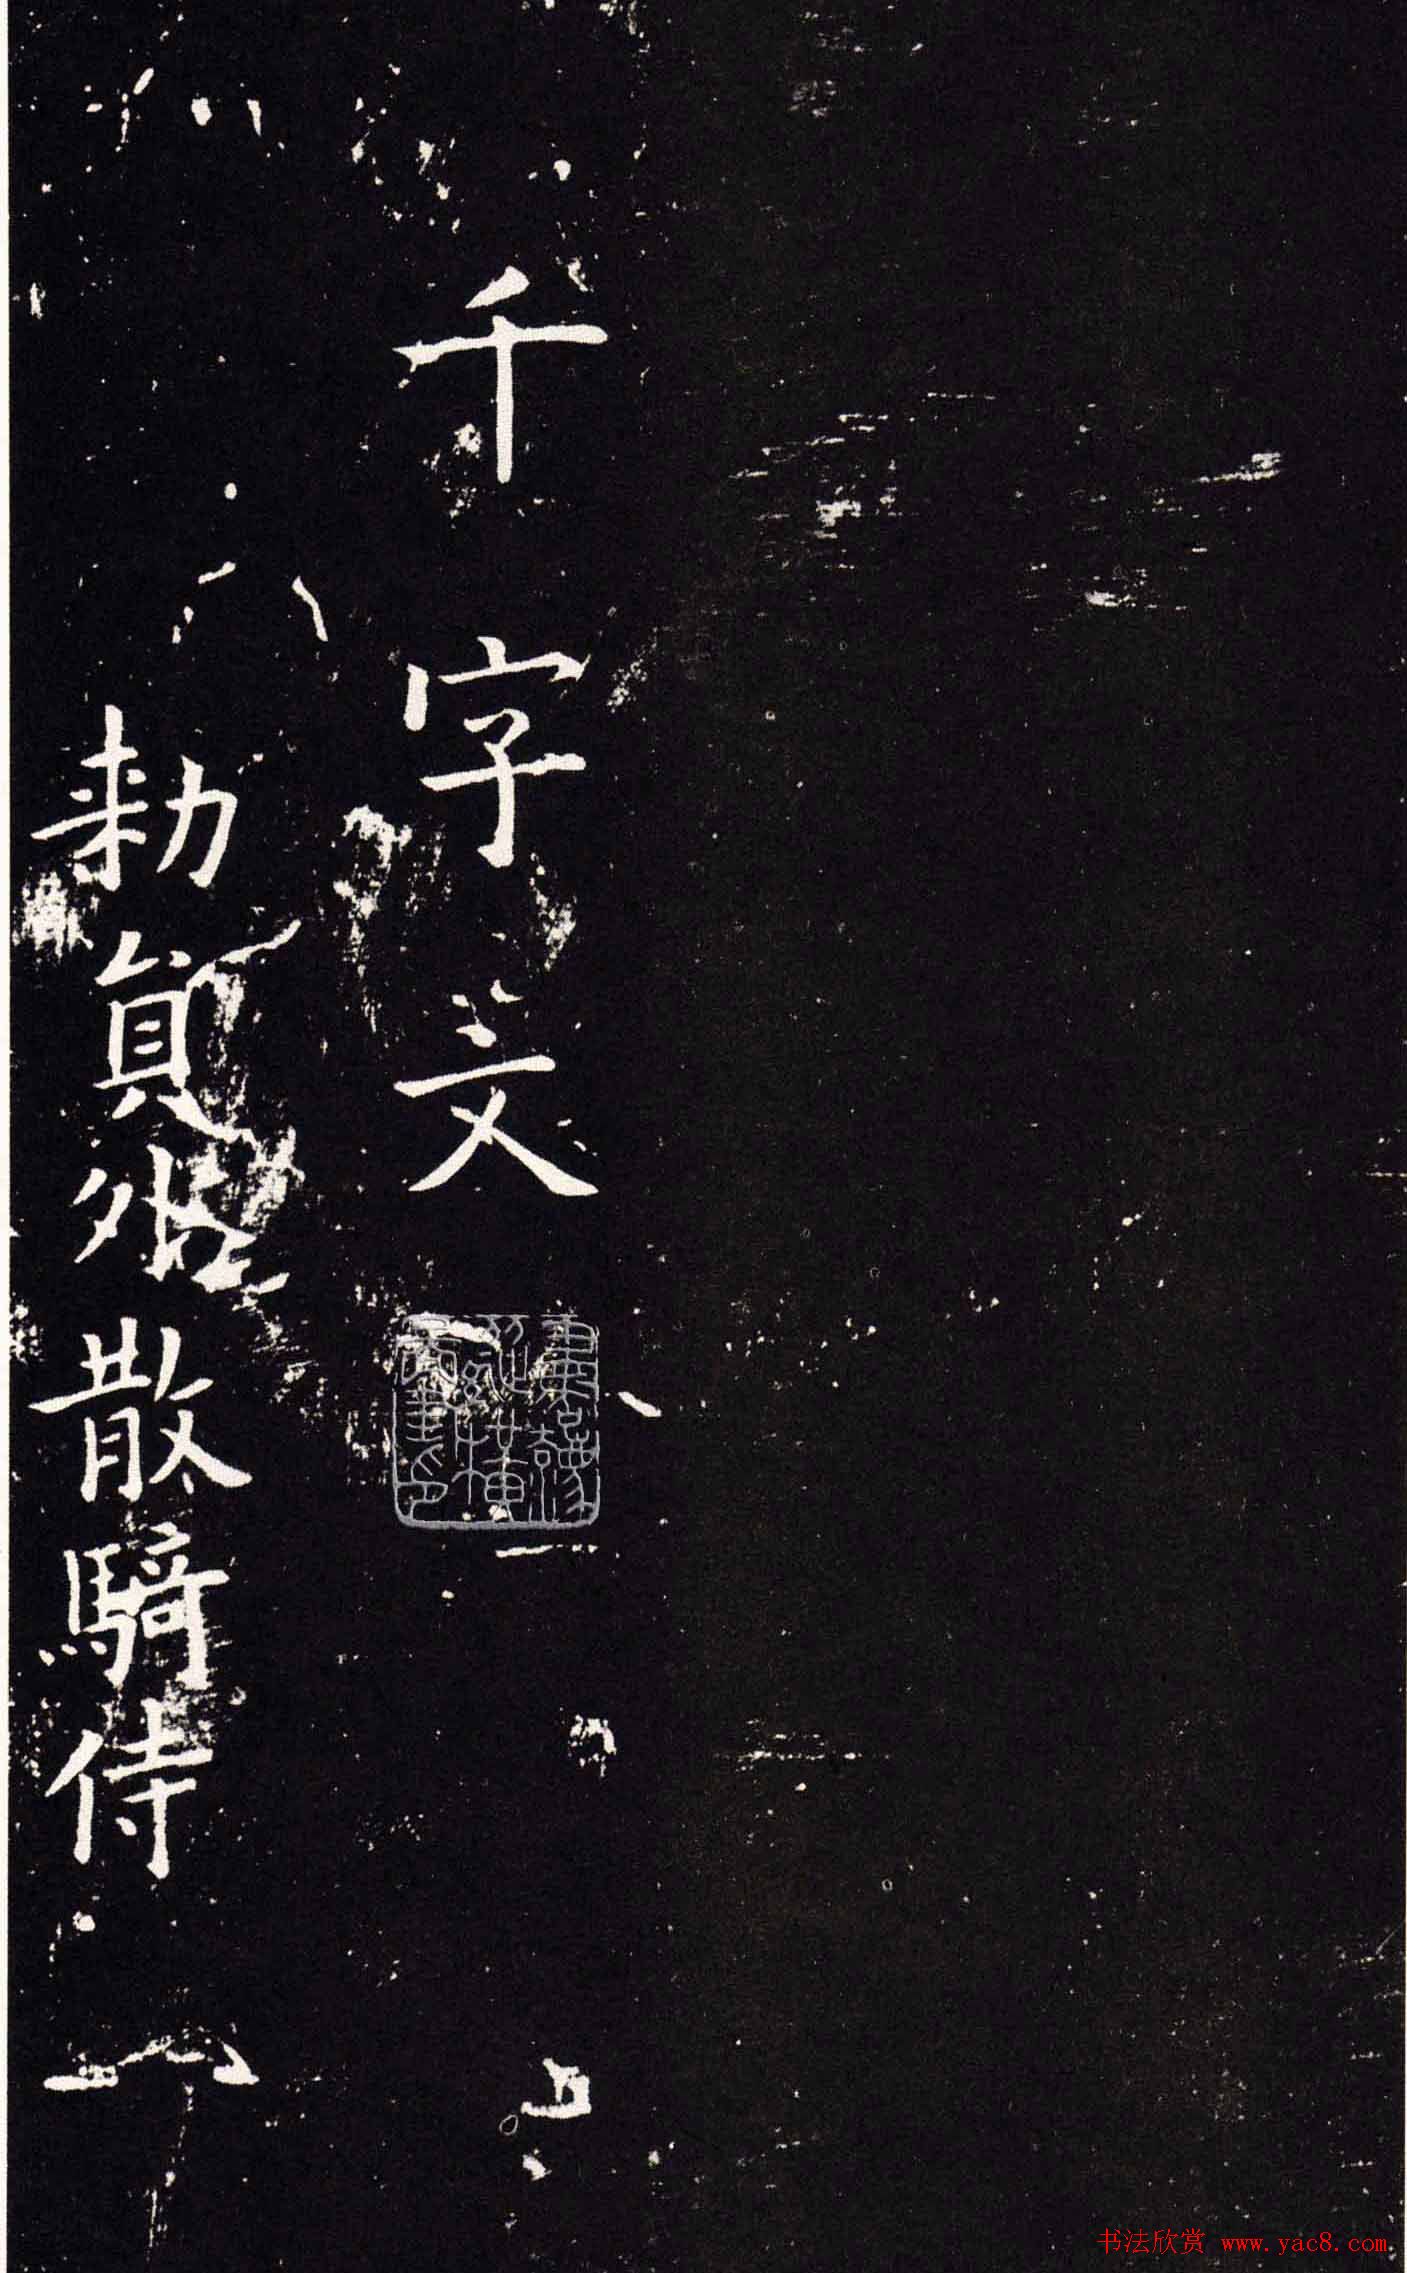 千字文
勑員外散騎侍
书法欣赏 www.yac8.com